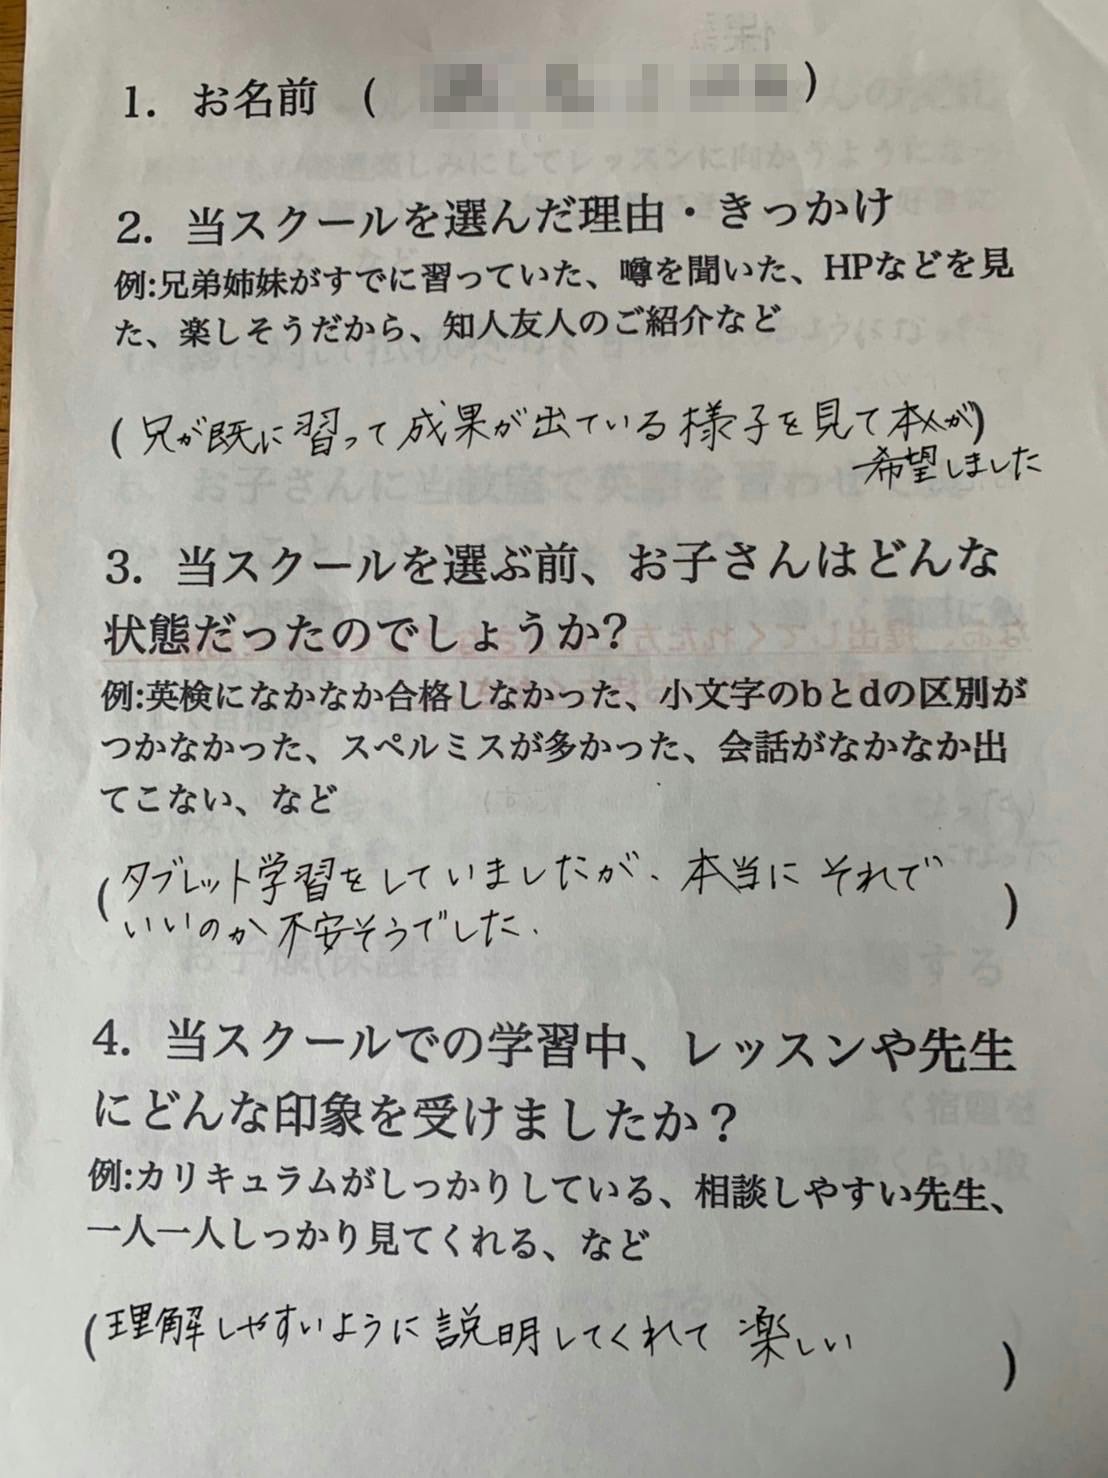 1. お名前 ( )
2. 当スクールを選んだ理由・きっかけ
例:兄弟姉妹がすでに習っていた、噂を聞いた、HPなどを見
た、楽しそうだから、知人友人のご紹介など
(兄が既に習って成果が出ている様子を見て本人が)
希望しました
3. 当スクールを選ぶ前、お子さんはどんな
状態だったのでしょうか?
例:英検になかなか合格しなかった、小文字のbとdの区別が
つかなかった、スペルミスが多かった、会話がなかなか出
てこない、など
(タブレット学習をしていましたが、本当にそれで
いいのか不安そうでした. )
4. 当スクールでの学習中、レッスンや先生
にどんな印象を受けましたか?
例:カリキュラムがしっかりしている、相談しやすい先生、
一人一人しっかり見てくれる、など
(理解しやすいように説明してくれて楽しい )